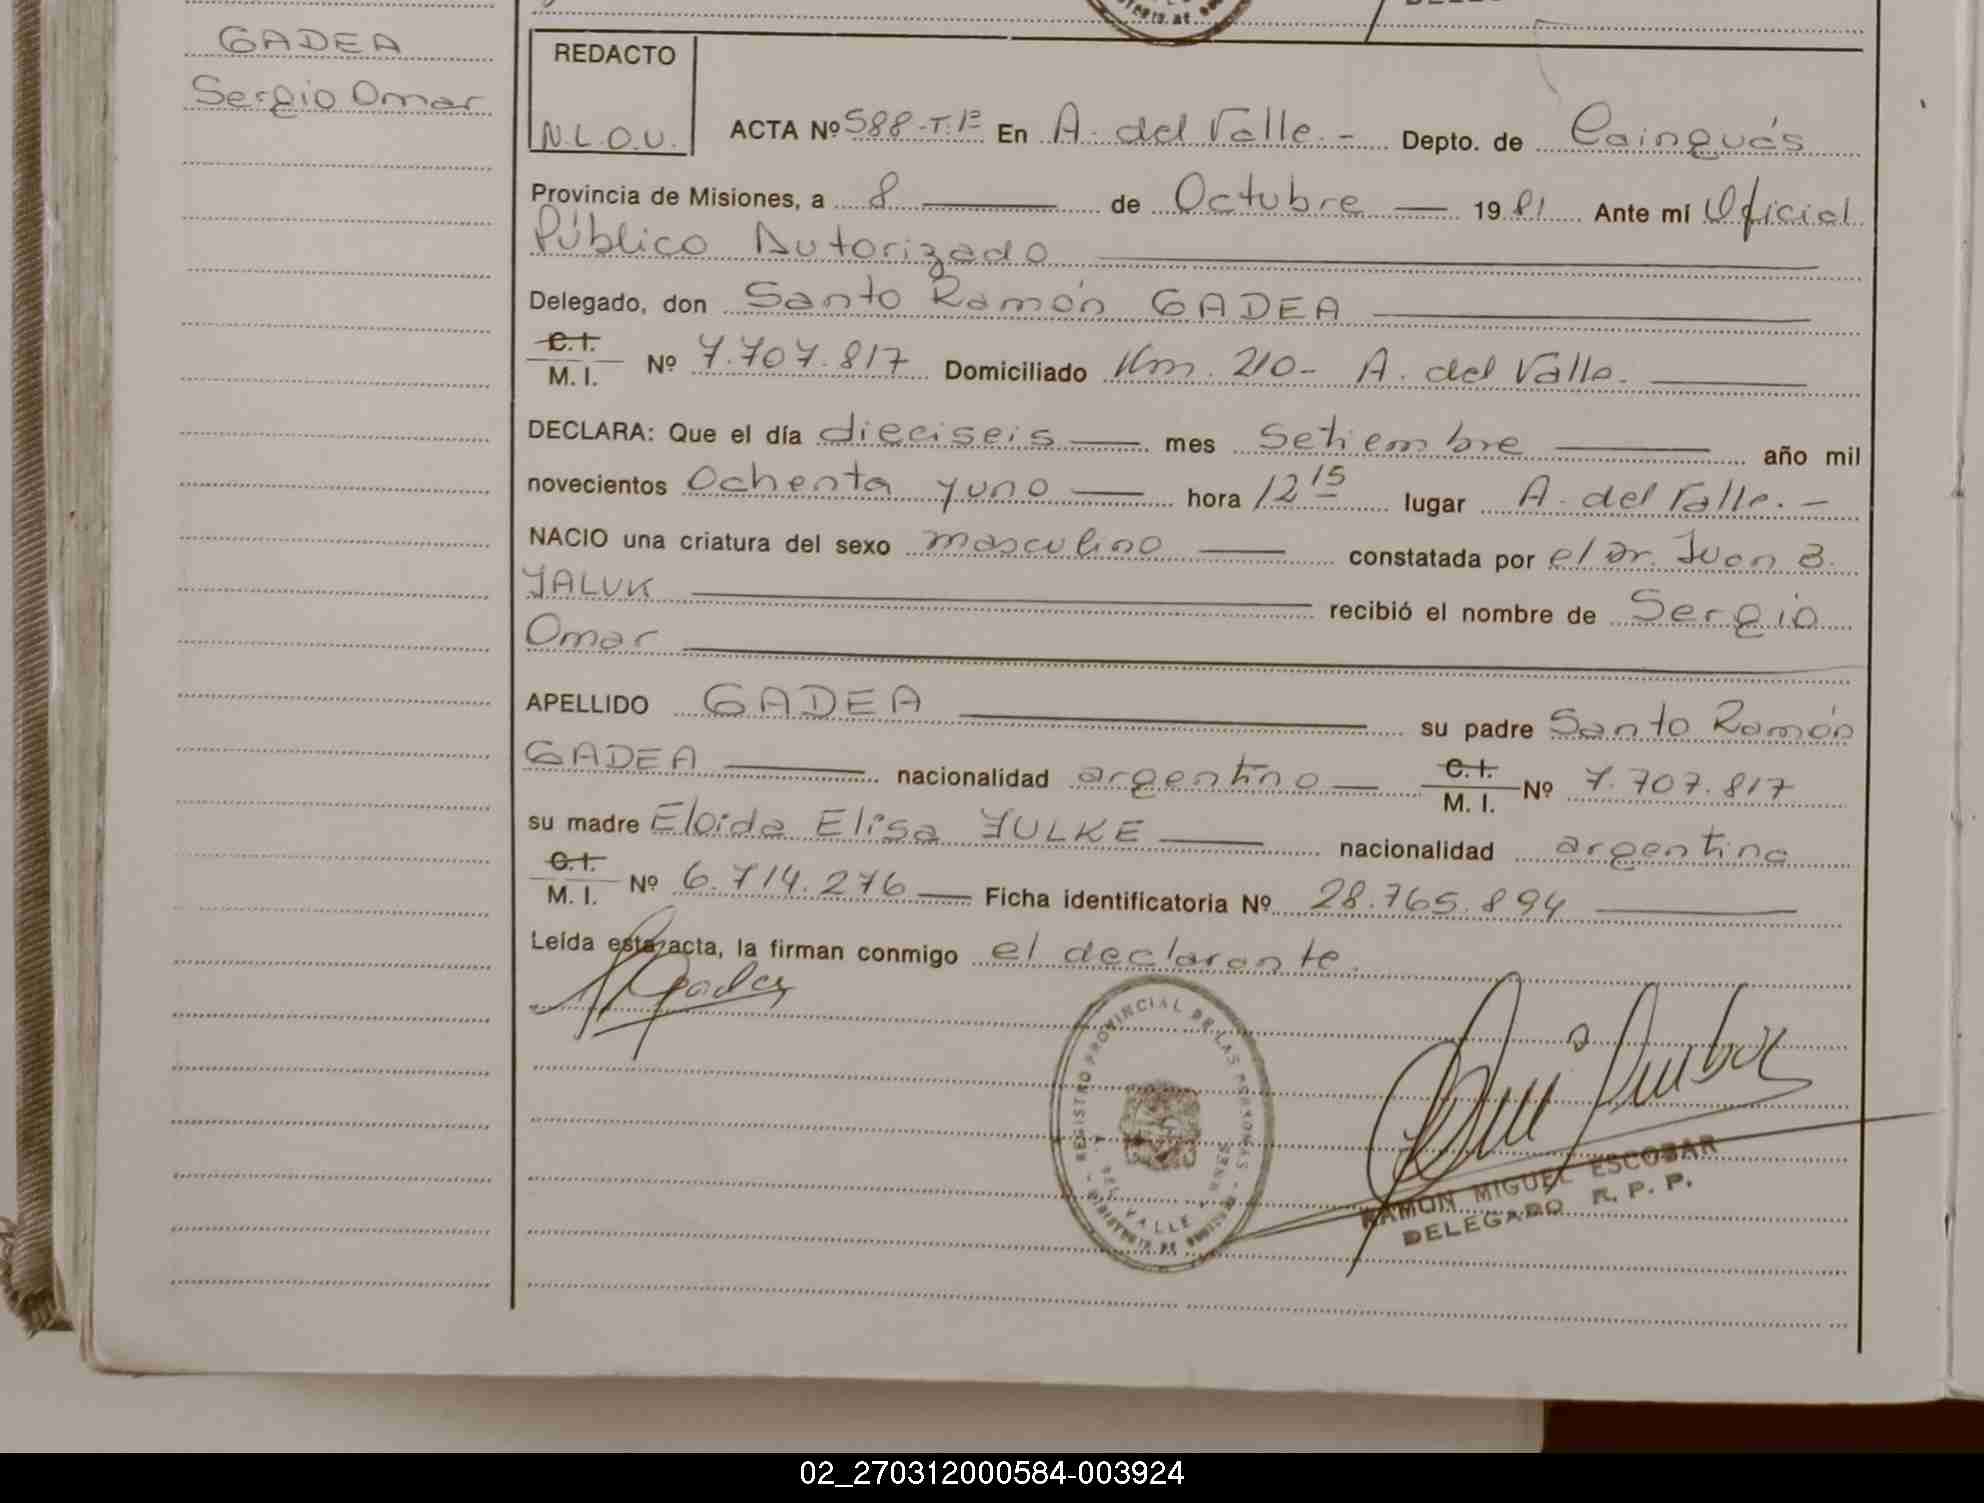 GADEA
Sergio Omar
REDACTO
N.L.O.U.
ACTA Nº 588-T.1º En A. del Valle.- Depto. de Cainguás
Provincia de Misiones, a 8 — de Octubre — 19 81 Ante mí Oficial
Público Autorizado
Delegado, don Santo Ramón GADEA
C.I. M. I. Nº 7.707.817 Domiciliado Km. 210- A. del Valle.
DECLARA: Que el día dieciseis — mes Setiembre — año mil
novecientos Ochenta y uno — hora 12 15 lugar A. del Valle.-
NACIO una criatura del sexo masculino — constatada por el Dr. Juan B.
YALUK — recibió el nombre de Sergio
Omar
APELLIDO GADEA — su padre Santo Ramón
GADEA — nacionalidad argentino — C.I. M. I. Nº 7.707.817
su madre Eloida Elisa YULKE — nacionalidad argentina
C.I. M. I. Nº 6.714.276 — Ficha identificatoria Nº 28.765.894
Leída esta acta, la firman conmigo el declarante.
REGISTRO PROVINCIAL DE LAS PERSONAS
DEL VALLE
RAMON MIGUEL ESCOBAR
DELEGADO R. P. P.
02_270312000584-003924